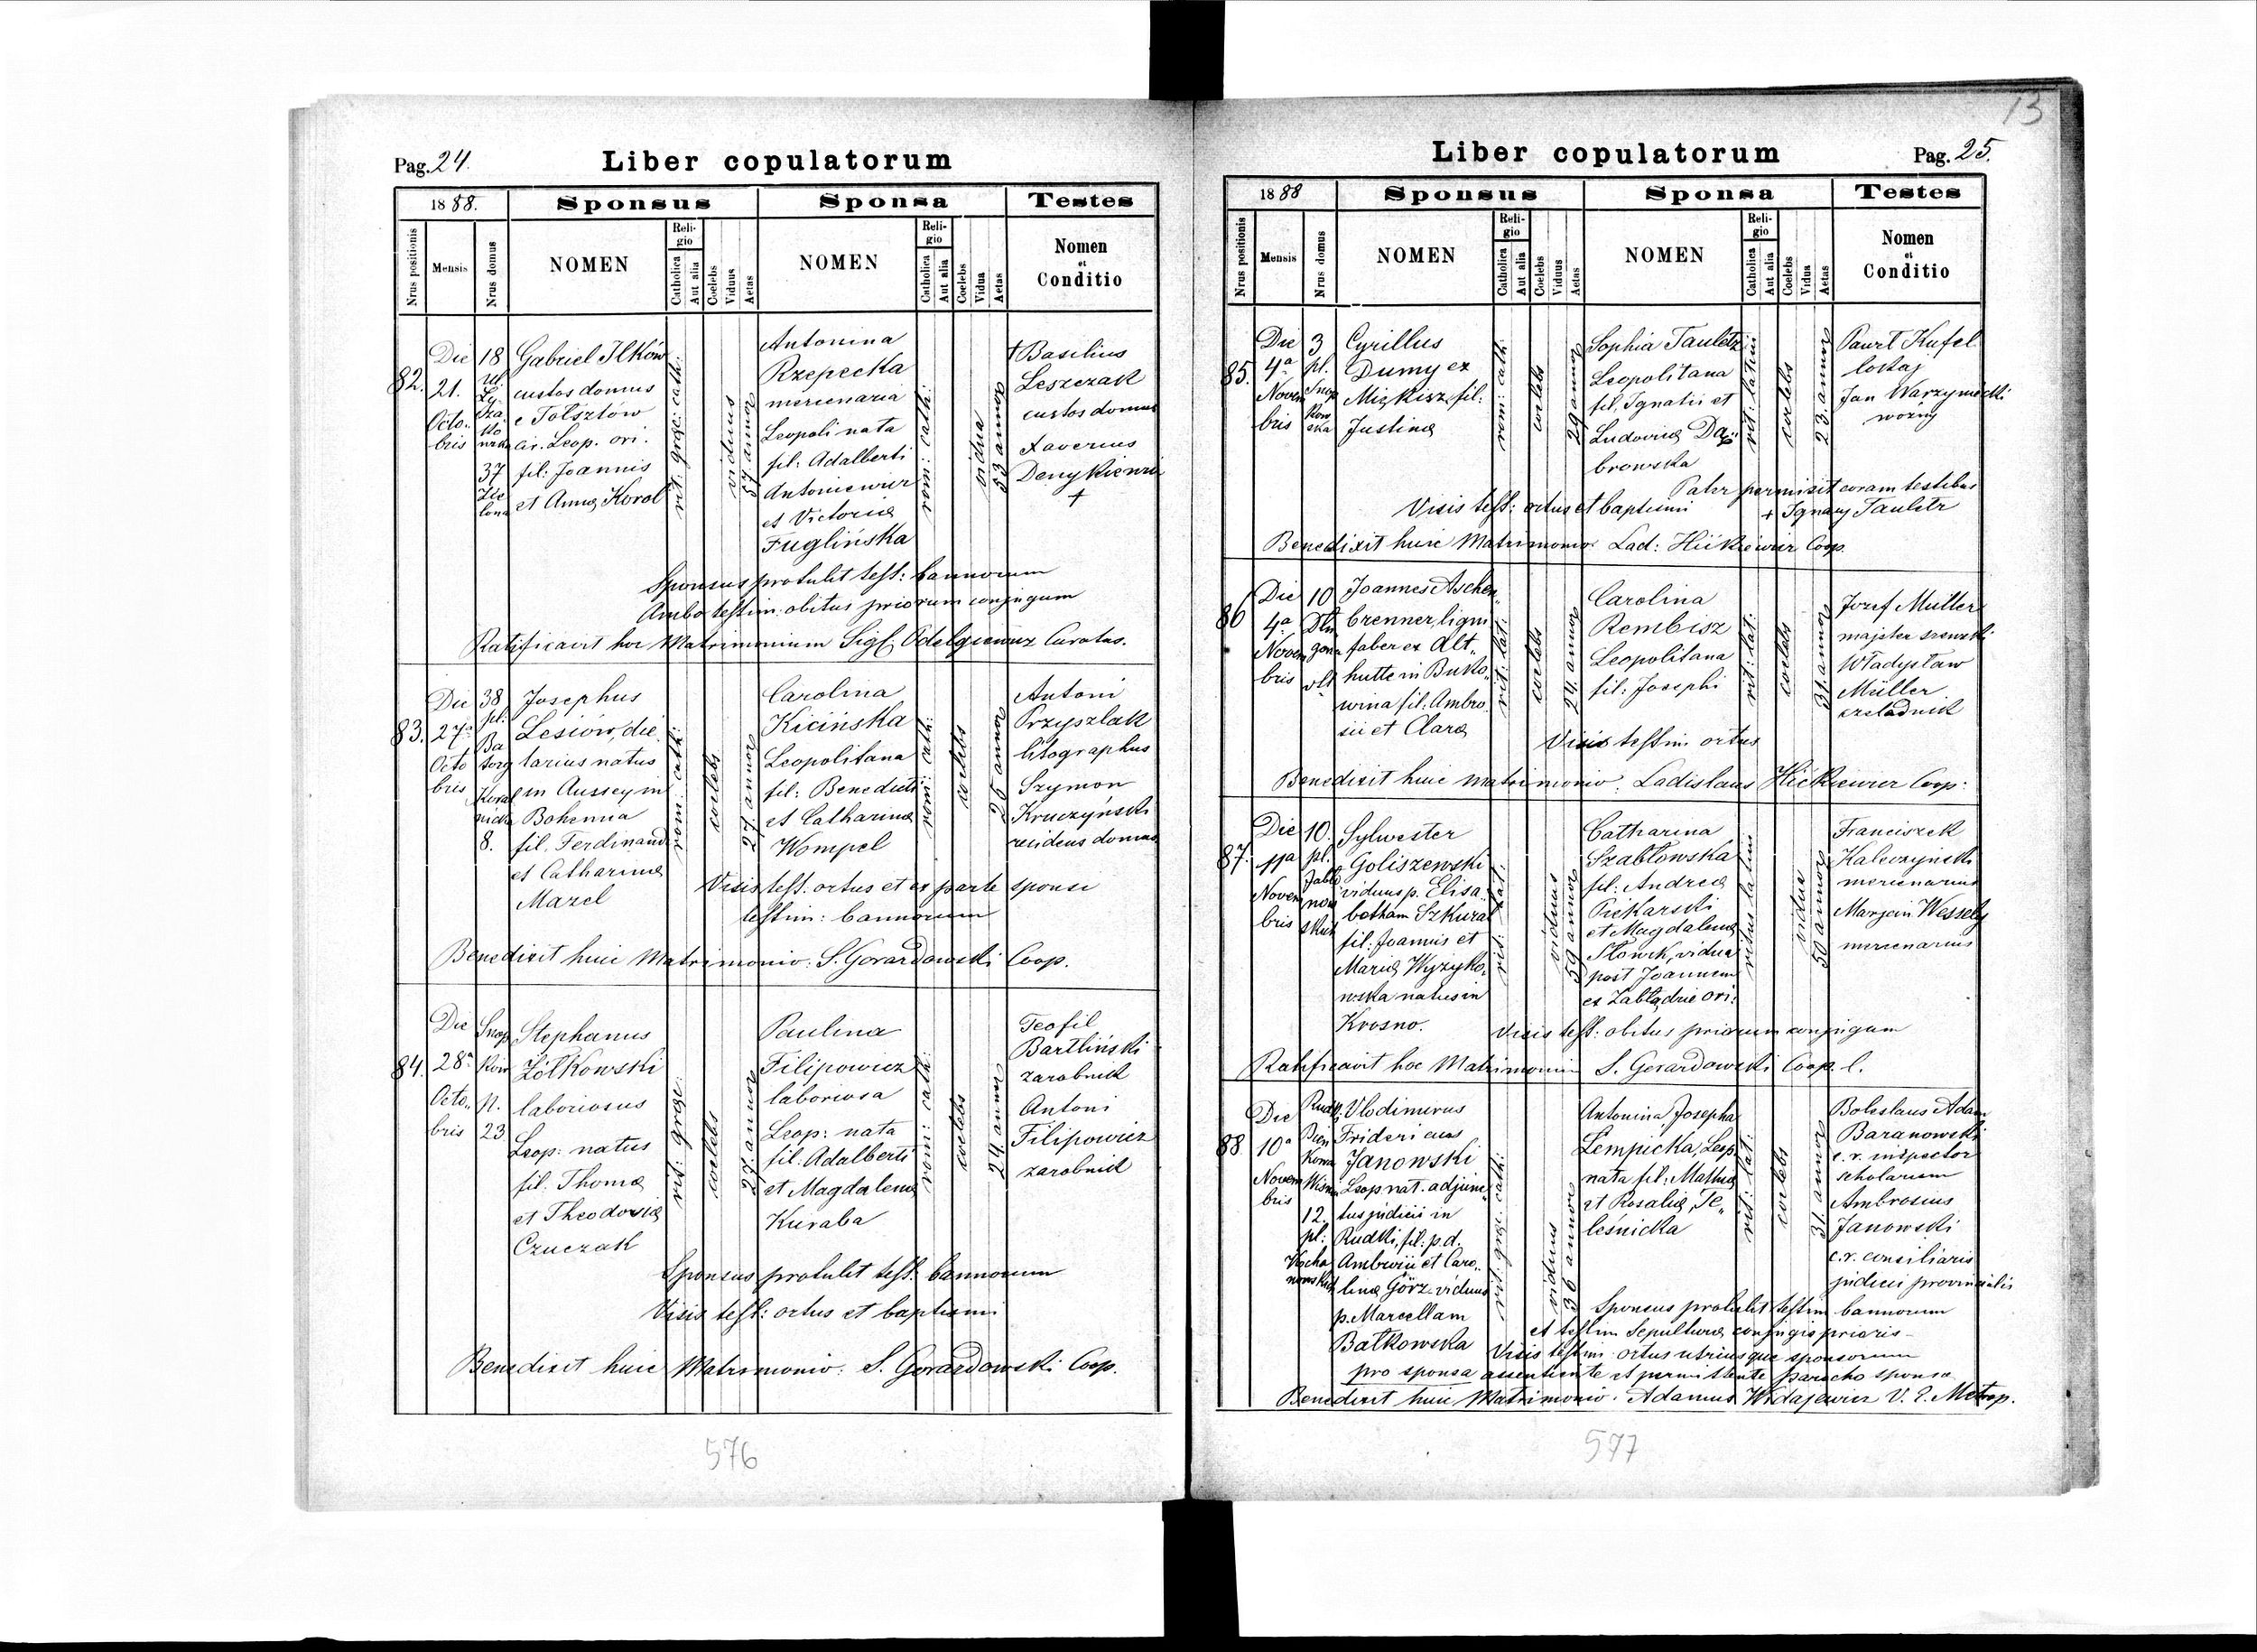 13
Pag. 24.
Liber copulatorum
1888.
Sponsus
Sponsa
Testes
Nrus positionis
Mensis
Nrus domus
NOMEN
Reli-
gio
Catholica
Aut alia
Coelebs
Viduus
Aetas
NOMEN
Reli-
gio
Catholica
Aut alia
Coelebs
Vidua
Aetas
Nomen
et
Conditio
82.
Die
21.
Octo.
bris
18
ul.
37
Zie
lona
Gabriel Ilków
custos domus
e Tolsztów
cir. Leop. ori.
fil: Joannis
et Annę Korol
rit: græc: cath:
viduus
57 annor
Antonina
Rzepecka
mercenaria
Leopoli nata
fil: Adalberti
Antoniewicz
et Victorię
Fuglińska
rom: cath:
vidua
53 annor
† Basilius
Leszczak
custos domus
Xaverius
+
Sponsus protulit test: bannorum
Ambo testim. obitus priorum conjugum
Ratificavit hoc Matrimonium Sigf. Odelgiewicz Curatus.
83.
Die
27a
Octo
bris
38
pl:
Ba
torg
8.
Josephus
Lesiów, die
tarius natus
in Aussey in
Bohemia
fil. Ferdinand
et Catharinę
Mazel
rom: cath:
coelebs
27. annor
Carolina
Kicińska
Leopolitana
fil: Benedicti
et Catharinę
Wompel
rom: cath:
coelebs
25 annor
Antoni
Przyszlak
litographus
Szymon
Kruczyński
residens domus
Visis test. ortus et ex parte sponsi
testim: bannorum
Benedixit huic Matrimonio: S. Gerardowski Coop.
84.
Die
28a
Octo.
bris
Snop
ków
n.
23
Stephanus
Żółkowski
laboriosus
Leop: natus
fil: Thomę
et Theodorię
Czuczak
rit: græc:
coelebs
27. annor
Paulina
Filipowicz
laboriosa
Leop: nata
fil: Adalberti
et Magdalenę
Kuraba
rom: cath:
coelebs
24 annor
Teofil
Bartliński
zarobnik
Antoni
Filipowicz
zarobnik
Sponsus protulit test: bannorum
Visis test: ortus et baptismi
Benedixit huic Matrimonio: S. Gerardowski Coop.
576
Liber copulatorum
Pag. 25.
1888
Sponsus
Sponsa
Testes
Nrus positionis
Mensis
Nrus domus
NOMEN
Reli-
gio
Catholica
Aut alia
Coelebs
Viduus
Aetas
NOMEN
Reli-
gio
Catholica
Aut alia
Coelebs
Vidua
Aetas
Nomen
et
Conditio
85.
Die
4a
Novem
bris
3
pl.
Snop
kow
ska
Cyrillus
Dumy ex
Miękisz fil:
Justinę
rom: cath:
coelebs
29 annor
Sophia Tauletz
Leopolitana
fil. Ignatii et
Ludovicę Dą:
browska
rit: latini
coelebs
23. annor
Pawł Kufel
lokaj
Jan Warzymecki
woźny
Pater permisit coram testibus
Visis test: ortus et baptismi
+ Ignacy Tauletz
Benedixit huic Matrimonio Lad: Hićkiewicz Coop.
86
Die
4a
Novem
bris
10
Dłu
gona
Joannes Aschen.
brenner, ligni
faber ex Alt.
hutte in Buko.
wina fil: Ambro
sii et Clarę
rit: lat:
coelebs
24. annor
Carolina
Rembisz
Leopolitana
fil: Josephi
rit: lat:
coelebs
31. annor
Jozef Müller
majster szewski
Władysław
Müller
czeladnik
Visis testim ortus
Benedixit huic matrimonio. Ladislaus Hićkiewicz Coop:
87.
Die
11a
Novem
bris
10.
pl.
Jabło
now
skich
Sylwester
Goliszewski
viduus p. Elisa
betham Szkurat
fil: Joannis et
Marię Wyzyko.
wska natus in
Krosno.
rit: lat:
viduus
59 annor
Catharina
Szabłowska
fil: Andreę
Piekarski
et Magdalenę
Słowik, vidua
post Joannem
ex Zabłędzie ori:
ritus latini
vidua
50 annor
Franciszek
Kaleczyński
mercenarius
Marycin Wessely
mercenarius
Visis test: obitus priorum conjugum
Ratificavit hoc Matrimonium S. Gerardowski Coop. l.
88
Die
10a
Novem
bris
12.
pl:
Vlodimirus
Fridericus
Janowski
Leop. nat. adjunc.
tus judicii in
Rudki, fil: p.d.
Ambrosii et Caro.
linę Görz viduus
p. Marcellam
Batkowska
rit: græc. cath:
viduus
36 annor
Antonina, Josepha
Łempicka, Leop
nata fil: Mathię
et Rosalię Te.
leśnicka
rit: lat:
coelebs
31. annor
Boleslaus Adam
Baranowski
c. r. inspector
scholarum
Ambrosius
Janowski
c. r. consiliaris
judicii provincialis
Sponsus protulit testim bannorum
et testim Sepulturę conjugis prioris
Visis testim: ortus utriusque sponsorum
pro sponsa assentiente et permittente parocho sponsa
Benedixit huic Matrimonio. Adamus Widajewicz V. E. Metrop.
577